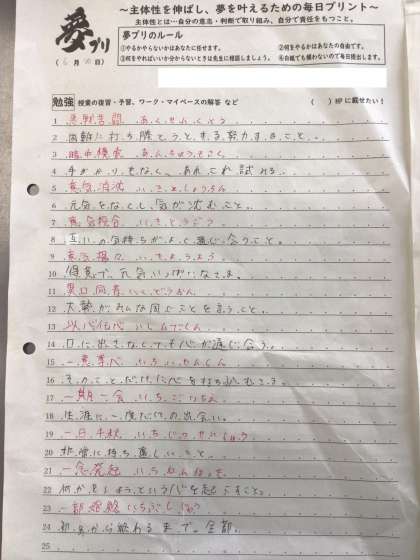 ～主体性を伸ばし、夢を叶えるための毎日プリント～
主体性とは…自分の意志・判断で取り組み、自分で責任をもつこと。
夢プリ
夢プリのルール
①やるかやらないかはあなたに任せます。 ②何をやるかはあなたの自由です。
③何をやればいいか分からないときは先生に相談しましょう。 ④白紙でも構わないので毎日提出します。
月 日
勉強 授業の復習・予習、ワーク・マイペースの解答 など ( )HPに載せたい!
1 悪戦苦闘 あくせんくとう
2 困難に打ち勝とうとする努力すること。
3 暗中模索 あんちゅうもさく
4 手がかりもなく、あれこれ試みる。
5 意気消沈 いきしょうちん
6 元気をなくし、気が沈むこと。
7 意気投合 いきとうごう
8 互いの気持ちがよく通じ合うこと。
9 意気揚々 いきようよう
10 得意で、元気いっぱいなさま。
11 異口同音 いくどうおん
12 大勢がみんな同じことを言うこと。
13 以心伝心 いしんでんしん
14 口に出さなくても心が通じ合う。
15 一意専心 いちいせんしん
16 そのことだけに心を打ち込むこと。
17 一期一会 いちごいちえ
18 生涯に一度だけの出会い。
19 一日千秋 いちじつせんしゅう
20 非常に待ち遠しいこと
21 一念発起 いちねんほっき
22 何かをしようという心を起こすこと。
23 一部始終 いちぶしじゅう
24 始めから終わるまで。全部。
25